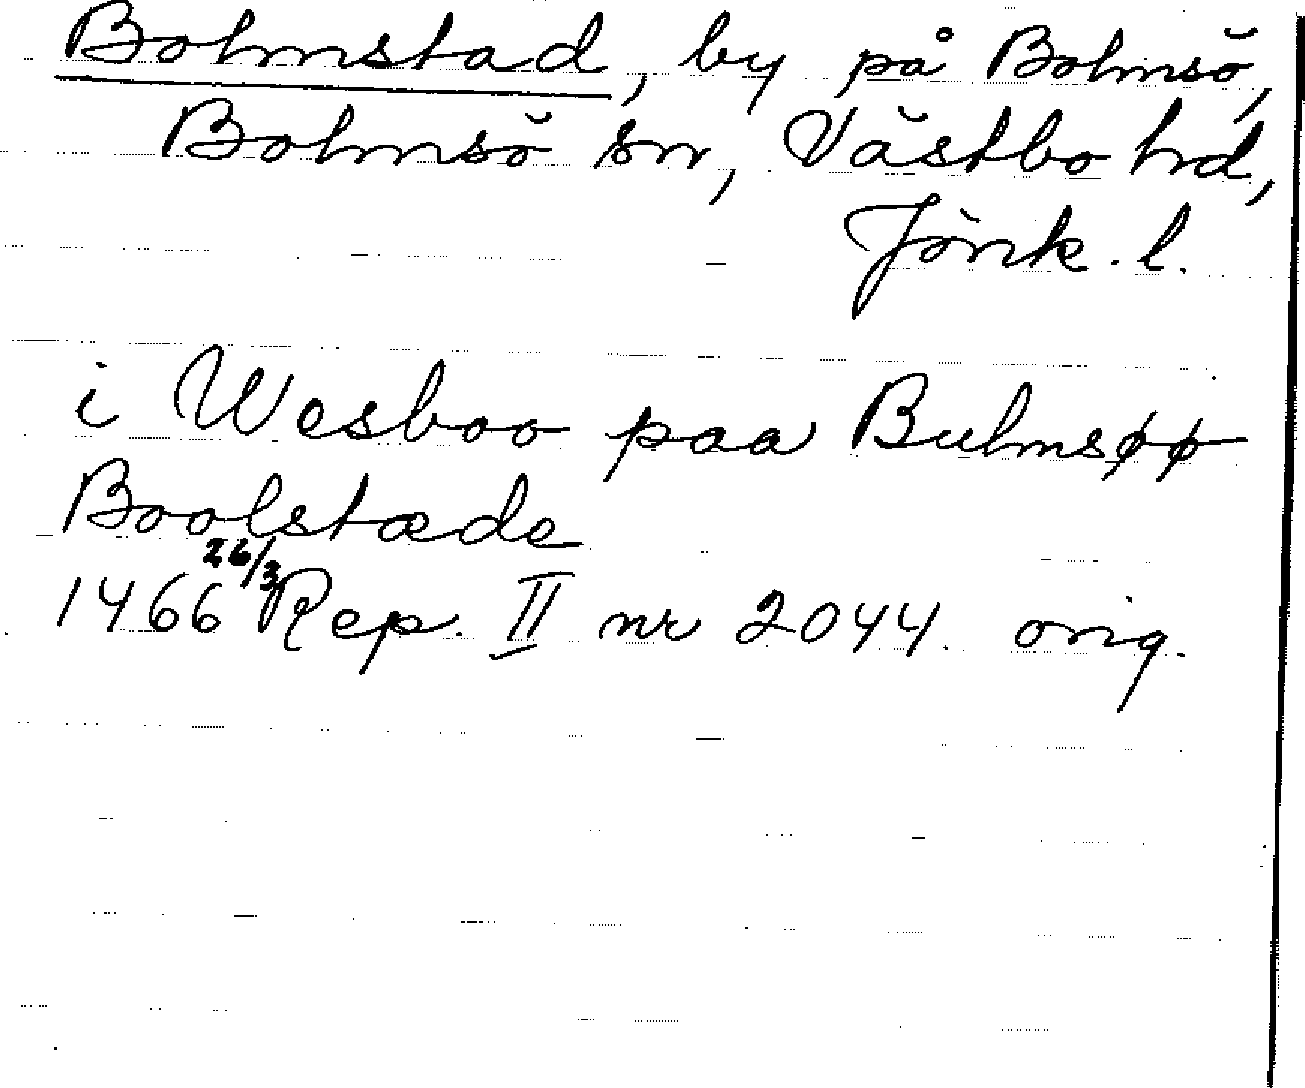 Bolmstad, by på Bolmsö,
Bolmsö sn, Västbo hd,
Jönk. l.
i Wesboo paa Bulmsøø
Boolstæde
1466 26/3 Rep. II nr 2044. orig.